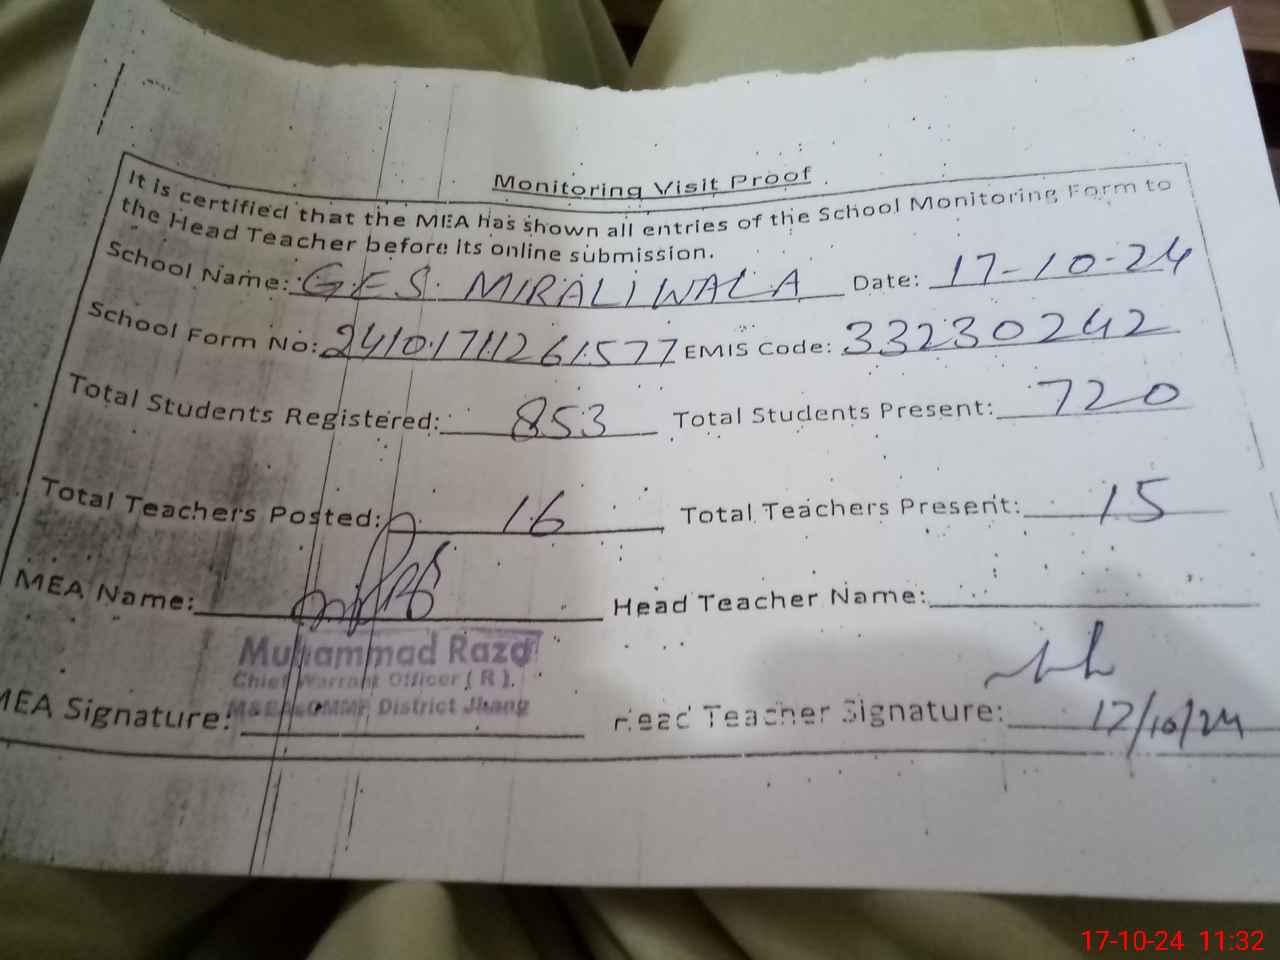 Monitoring Visit Proof
It is certified that the MEA has shown all entries of the School Monitoring Form to
the Head Teacher before its online submission.
School Name: G.E.S. MIRALIWALA Date: 17-10-24
School Form No: 24101711261577 EMIS Code: 33230242
Total Students Registered: 853 Total Students Present: 720
Total Teachers Posted: 16 Total Teachers Present: 15
MEA Name: Head Teacher Name:
Muhammad Raza
Chief Warrant Officer ( R ).
District Jhang
MEA Signature: Head Teacher Signature: 17/10/24
17-10-24 11:32